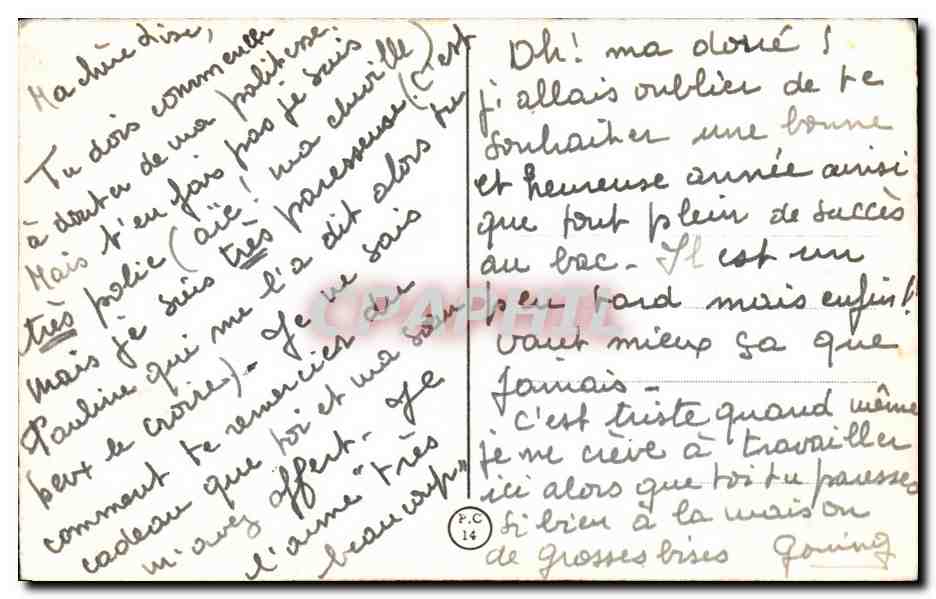 Ma chère Lise,
Tu dois commencer
à douter de ma politesse.
Mais t'en fais pas je suis
très polie (aïe! ma cheville)
mais je suis très paresseuse (c'est
Pauline qui me l'a dit alors tu
peux le croire) - Je ne sais
comment te remercier du
cadeau que toi et ma sœur
m'avez offert - Je
l'aime "très
beaucoup"
Oh! ma doué !
j'allais oublier de te
souhaiter une bonne
et heureuse année ainsi
que tout plein de succès
au bac - Il est un
peu tard mais enfin!
vaut mieux ça que
jamais -
C'est triste quand même
je me crève à travailler
ici alors que toi tu paresses
si bien à la maison
de grosses bises
P.C
14
CPAPHIL